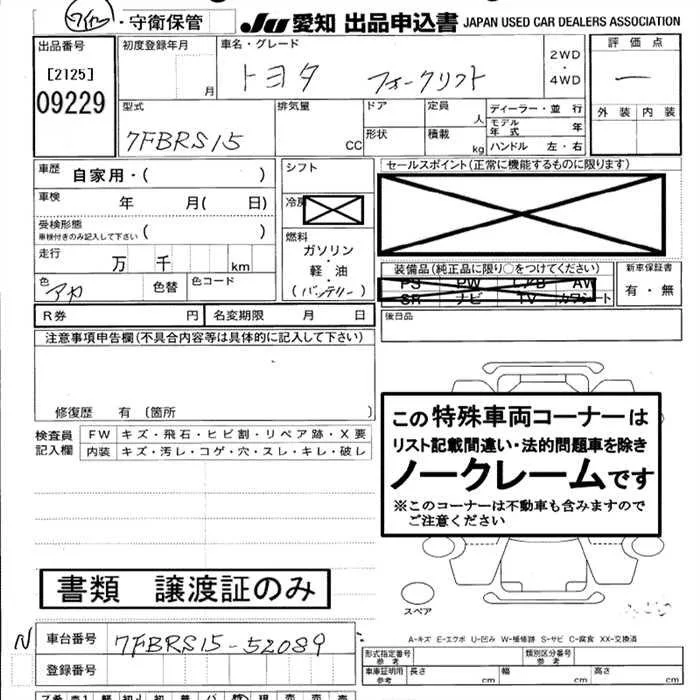 ・守衛保管 JU 愛知 出品申込書 JAPAN USED CAR DEALERS ASSOCIATION
出品番号 初度登録年月 車名・グレード 評価点
[2125] 月 トヨタ フォークリフト 2WD・4WD
09229 外装 内装
型式 排気量 ドア 定員 人 ディーラー・並行
7FBRS15 CC 形状 積載 kg モデル年式 年
ハンドル 左・右
車歴 自家用・( ) シフト セールスポイント(正常に機能するものに限ります)
車検 年 月( 日) 冷房
受検形態 車検付きのみ記入して下さい ( ) 燃料
ガソリン・軽油・(バッテリー)
走行 万 千 km 装備品(純正品に限り○をつけてください) 新車保証書
色 アカ 色替 色コード PS PW AW 有・無
SR ナビ TV カワシート
R券 円 名変期限 月 日 後日品
注意事項申告欄(不具合内容等は具体的に記入して下さい)
修復歴 有 〔箇所 〕
この特殊車両コーナーは
リスト記載間違い・法的問題車を除き
ノークレームです
※このコーナーは不動車も含みますので
ご注意ください
検査員記入欄 FW キズ・飛石・ヒビ割・リペア跡・X要
内装 キズ・汚レ・コゲ・穴・スレ・キレ・破レ
書類 譲渡証のみ
スペア
A-キズ E-エクボ U-凹み W-補修跡 S-サビ C-腐食 XX-交換済
N 車台番号 7FBRS15-52089
登録番号
形式指定番号 参考 類別区分番号 参考
車庫証明用 参考 長さ cm 幅 cm 高さ cm